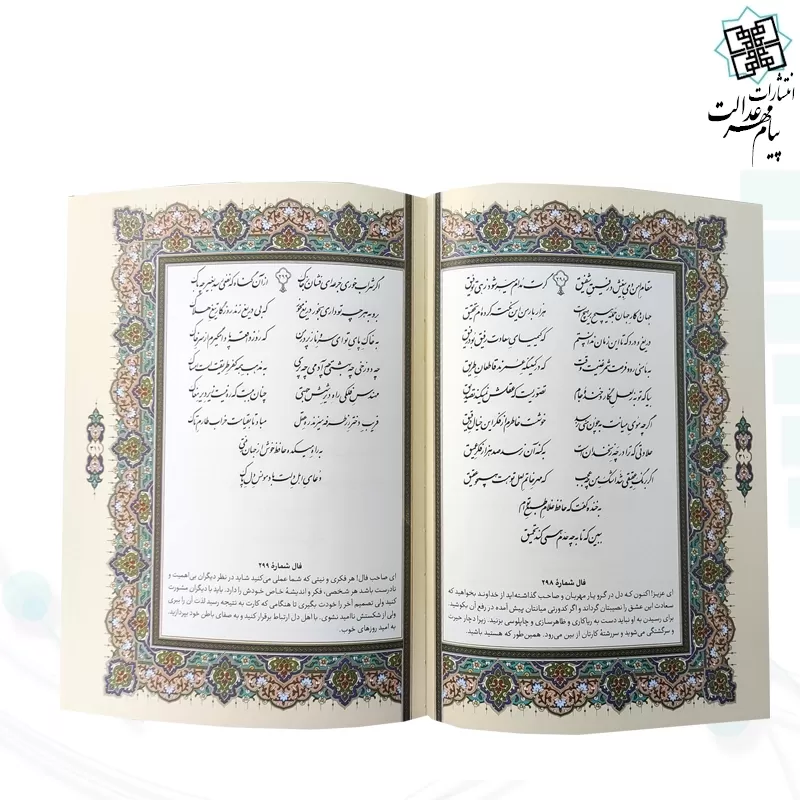 انتشارات
پیام مهر عدالت
۲۹۸
مقام امن و می بی‌غش و رفیق شفیق گرت مدام میسر شود زهی توفیق
جهان و کار جهان جمله هیچ بر هیچ است هزار بار من این نکته کرده‌ام تحقیق
دریغ و درد که تا این زمان ندانستم که کیمیای سعادت رفیق بود رفیق
به مأمنی رو و فرصت شمر غنیمت وقت که در کمینگه عمرند قاطعان طریق
بیا که توبه ز لعل نگار و خنده جام تصوریست که عقلش نمی‌کند تصدیق
اگرچه موی میانت به چون منی نرسد خوشست خاطرم از فکر این خیال دقیق
حلاوتی که ترا در چه زنخدان است به کنه آن نرسد صد هزار فکر عمیق
اگر به رنگ عقیقی شد اشک من چه عجب که مهر خاتم لعل تو هست همچو عقیق
به خنده گفت که حافظ غلام طبع توام
ببین که تا به چه حدم همی کند تحمیق
فال شمارهٔ ۲۹۸
ای عزیز! اکنون که دل در گرو یار مهربان و صاحب گذاشته‌اید از خداوند بخواهید که
سعادت این عشق را نصیبتان گرداند و اگر کدورتی میانتان پیش آمده در رفع آن بکوشید.
برای رسیدن به او نباید دست به ریاکاری و ظاهرسازی و چاپلوسی بزنید. زیرا دچار حیرت
و سرگشتگی می‌شوید و سررشتهٔ کارتان از بین می‌رود. همین‌طور که هستید باشید.
۲۹۹
اگر شراب خوری جرعه‌ای فشان بر خاک از آن گناه که نفعی رسد به غیر چه باک
برو به هر چه تو داری بخور دریغ مخور که بی‌دریغ زند روزگار تیغ هلاک
به خاک پای تو ای سرو نازپرور من که روز واقعه پا وامگیرم از سر خاک
چه دوزخی چه بهشتی چه آدمی چه پری به مذهب همه کفر طریقت است امساک
مهندس فلکی راه دیر شش جهتی چنان ببست که ره نیست زیر دیر مغاک
فریب دختر رز طرفه میزند ره عقل مباد تا به قیامت خراب طارم تاک
به راه میکده حافظ خوش از جهان رفتی
دعای اهل دلت باد مونس دل پاک
فال شمارهٔ ۲۹۹
ای صاحب فال! هر فکری و نیتی که شما عملی می‌کنید شاید در نظر دیگران بی‌اهمیت و
نادرست باشد هر شخصی، فکر و اندیشهٔ خاص خودش را دارد. باید با دیگران مشورت
کنید ولی تصمیم آخر را خودت بگیری تا هنگامی که کارت به نتیجه رسید لذت آن را ببری
ولی از شکستش ناامید نشوی. با اهل دل ارتباط برقرار کنید و به صفای باطن خود بپردازید.
به امید روزهای خوب.